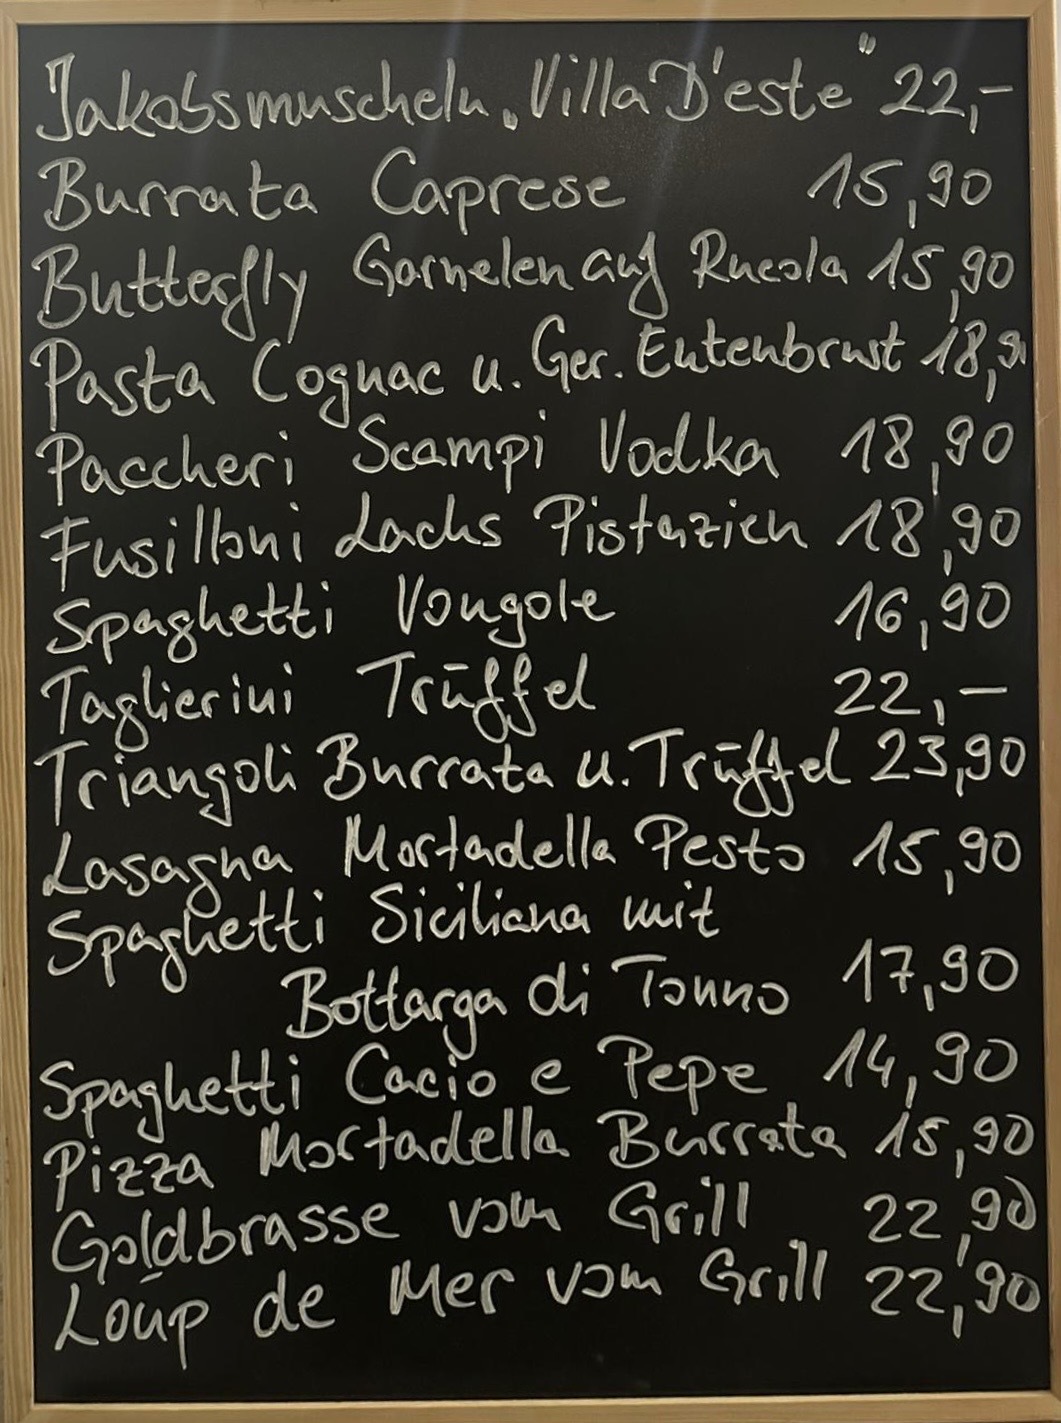 Jakobsmuscheln „Villa D'este" 22,-
Burrata Caprese 15,90
Butterfly Garnelen auf Rucola 15,90
Pasta Cognac u. Ger. Entenbrust 18,90
Paccheri Scampi Vodka 18,90
Fusilloni Lachs Pistazien 18,90
Spaghetti Vongole 16,90
Taglierini Trüffel 22,-
Triangoli Burrata u. Trüffel 23,90
Lasagna Mortadella Pesto 15,90
Spaghetti Siciliana mit
Bottarga di Tonno 17,90
Spaghetti Cacio e Pepe 14,90
Pizza Mortadella Burrata 15,90
Goldbrasse vom Grill 22,90
Loup de Mer vom Grill 22,90